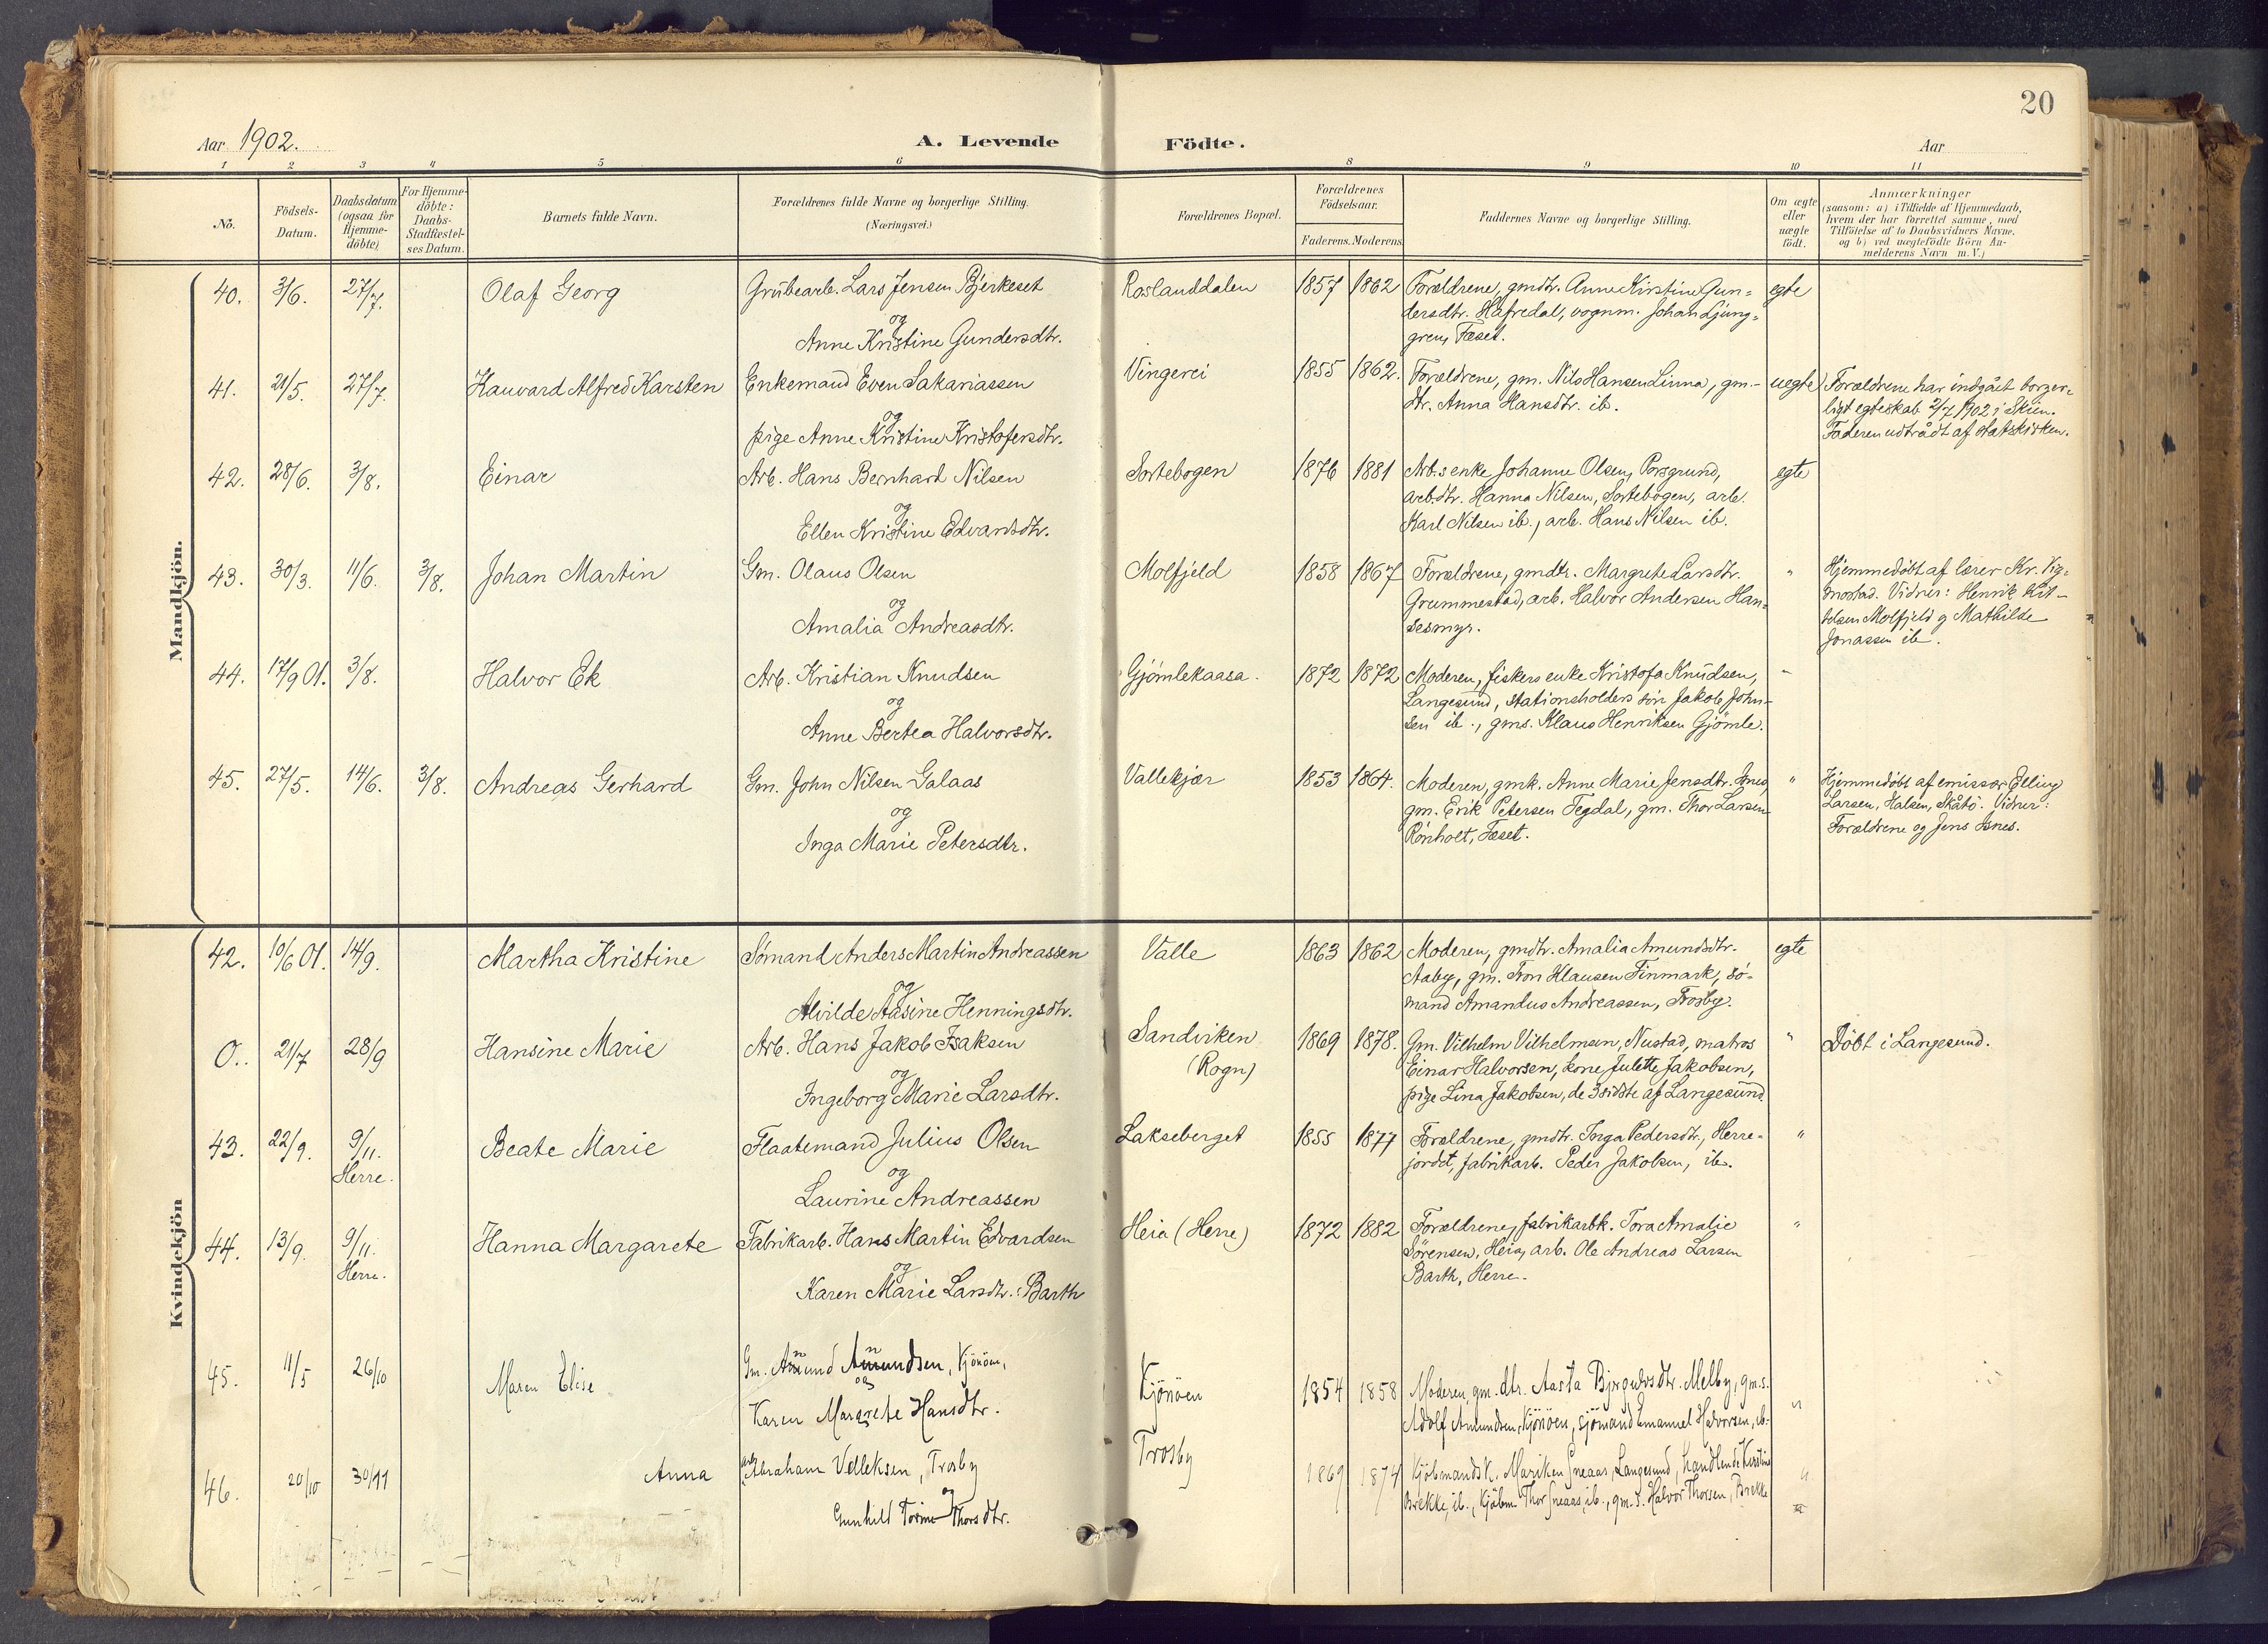 20
Aar 1902.
A. Levende Födte.
Aar
1 2 3 4 5 6 8 9 10 11
No.
Födsels-Datum.
Daabsdatum (ogsaa for Hjemme-döbte)
For Hjemme-döbte: Daabs-Stadfæstel-ses Datum.
Barnets fulde Navn.
Forældrenes fulde Navne og borgerlige Stilling.
(Næringsvei.)
Forældrenes Bopæl.
Forældrenes Födselsaar.
Faderens. Moderens.
Faddernes Navne og borgerlige Stilling.
Om ægte eller uægte födt.
Anmærkninger
(saasom: a) i Tilfælde af Hjemmedaab,
hvem der har forrettet samme, med
Tilföielse af to Daabsvidners Navne.
og b) ved uægtefödte Börn An-
melderens Navn m. V.)
Mandkjön.
40. 3/6. 27/7. Olaf Georg
Grubearb. Lars Jensen Bjerkeset
og
Anne Kristine Gundersdtr.
Roslanddalen 1857 1862
Forældrene, gmdtr. Anne Kirstine Gun-
dersdtr. Hafredal, vognm. Johan Ljung-
gren, Fæset.
egte
41. 21/5. 27/7. Hauvard Alfred Karsten
Enkemand Even Sakariassen
og
pige Anne Kristine Kristofersdtr.
Vingerei 1855 1862.
Forældrene, gm. Nils Hansen Linna, gm.-
dtr. Anna Hansdtr. ib.
uegte
Forældrene har indgået borger-
ligt egteskab 2/7 1902 i Skien.
Faderen udtrådt af statskirken.
42. 28/6. 3/8. Einar
Arb. Hans Bernhard Nilsen
og
Ellen Kristine Edvardsdtr.
Sortebogen 1876 1881
Arb.s enke Johanne Olsen, Porsgrund,
arb.dtr. Hanna Nilsen, Sortebogen, arb.
Karl Nilsen ib., arb. Hans Nilsen ib.
egte
43. 30/3. 11/6. 3/8. Johan Martin
Gm. Olaus Olsen
og
Amalia Andreasdtr.
Molfjeld 1858 1867
Forældrene, gmdtr. Margrete Larsdtr.
Grummestad, arb. Halvor Andersen Han-
sesmyr.
"
Hjemmedöbt af lærer Kr. Vig-
mostad. Vidner: Henrik Kit-
telsen Molfjeld og Mathilde
Jonassen ib.
44. 17/9 01. 3/8. Halvor Ek
Arb. Kristian Knudsen
og
Anne Bertea Halvorsdtr.
Gjömlekaasa. 1872 1872
Moderen, fiskers enke Kristofa Knudsen,
Langesund, stationsholders sön Jakob John-
sen ib., gms. Klaus Henriksen Gjömle.
"
45. 27/5. 14/6. 3/8. Andreas Gerhard
Gm. John Nilsen Galaas
og
Inga Marie Petersdtr.
Vallekjær 1853 1864.
Moderen, gmk. Anne Marie Jensdtr. Isnes,
gm. Erik Petersen Tegdal, gm. Thor Larsen
Rönholt, Fæset.
"
Hjemmedöbt af emissær Elling
Larsen, Halsen, Skåtö. Vidner:
Forældrene og Jens Isnes.
Kvindekjön
42. 10/6 01. 14/9. Martha Kristine
Sömand Anders Martin Andreassen
og
Alvilde Aasine Henningsdtr.
Valle 1863 1862
Moderen, gmdtr. Amalia Amundsdtr.
Aaby, gm. Tron Klausen Finmark, sö-
mand Amandus Andreassen, Trosby.
egte
O.. 21/7 28/9 Hansine Marie
Arb. Hans Jakob Isaksen
og
Ingeborg Marie Larsdtr.
Sandviken
(Rogn)
1869 1878.
Gm. Vilhelm Vilhelmsen, Nustad, matros
Einar Halvorsen, kone Julette Jakobsen,
pige Lina Jakobsen, de 3 sidste af Langesund
"
Döbt i Langesund.
43. 22/9. 9/11. Herre. Beate Marie
Flaatemand Julius Olsen
og
Laurine Andreassen
Lakseberget 1855 1877
Forældrene, gmdtr. Inga Pedersdtr., Herre-
jordet, fabrikarb. Peder Jakobsen, ib.
"
44. 13/9. 9/11. Herre. Hanna Margarete
Fabrikarb. Hans Martin Edvardsen
og
Karen Marie Larsdtr. Barth
Heia (Herre) 1872 1882
Forældrene, fabrikarbk. Tora Amalie
Sörensen, Heia, arb. Ole Andreas Larsen
Barth, Herre.
"
45. 11/5 26/10 Maren Elise
Gm. Amund Amundsen, Kjönöen,
og
Karen Margrete Hansdtr.
Kjönöen 1854 1858
Moderen, gm. dtr. Aasta Melby, gm.s.
Adolf Amundsen, Kjönöen, sjömand Emanuel Halvorsen, ib.
"
46. 20/10 30/11 Anna
arb. Abraham Velleksen, Trosby
og
Gunhild Torine Thorsdtr.
Trosby 1869 1874
Kjöbmandsk. Mariken Sneaas, Langesund, handlende Kirstine
Brekke, ib., kjöbm. Thor Sneaas, ib., gm. s. Halvor Thorsen, Brekke
"